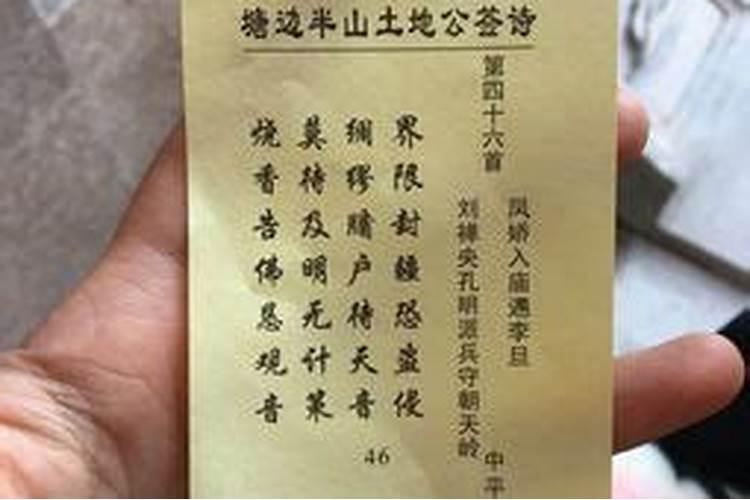 塘边半山土地公签诗
第四十六首
凤娇入庙遇李旦
刘禅央孔明派兵守朝天岭
中平
界限封疆恐盗侵
绸缪牖户待天音
莫待及明无计策
烧香告佛恳观音
46